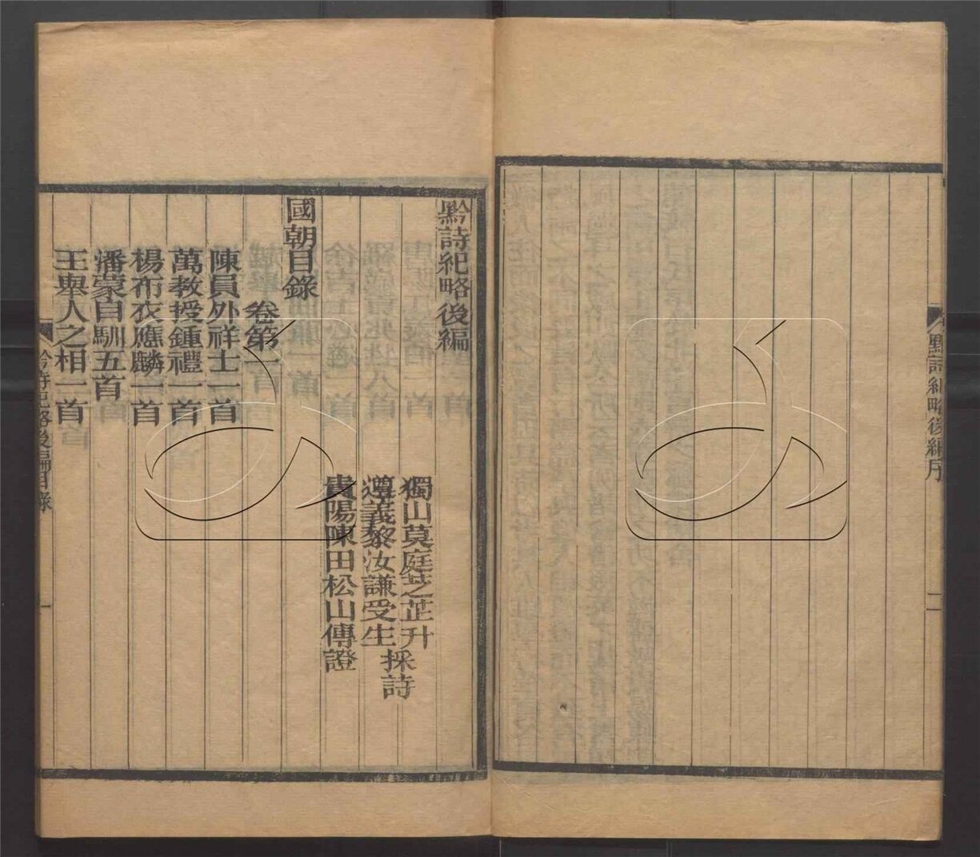 黔詩紀略後編序
二
黔詩紀略後編
獨山莫庭芝芷升
遵義黎汝謙受生
採詩
貴陽陳田松山傳證
國朝目錄
卷第一
陳員外祥士一首
萬教授鍾禮一首
楊布衣應麟一首
潘蒙自馴五首
王舉人之相一首
黔詩紀略後編目錄
一